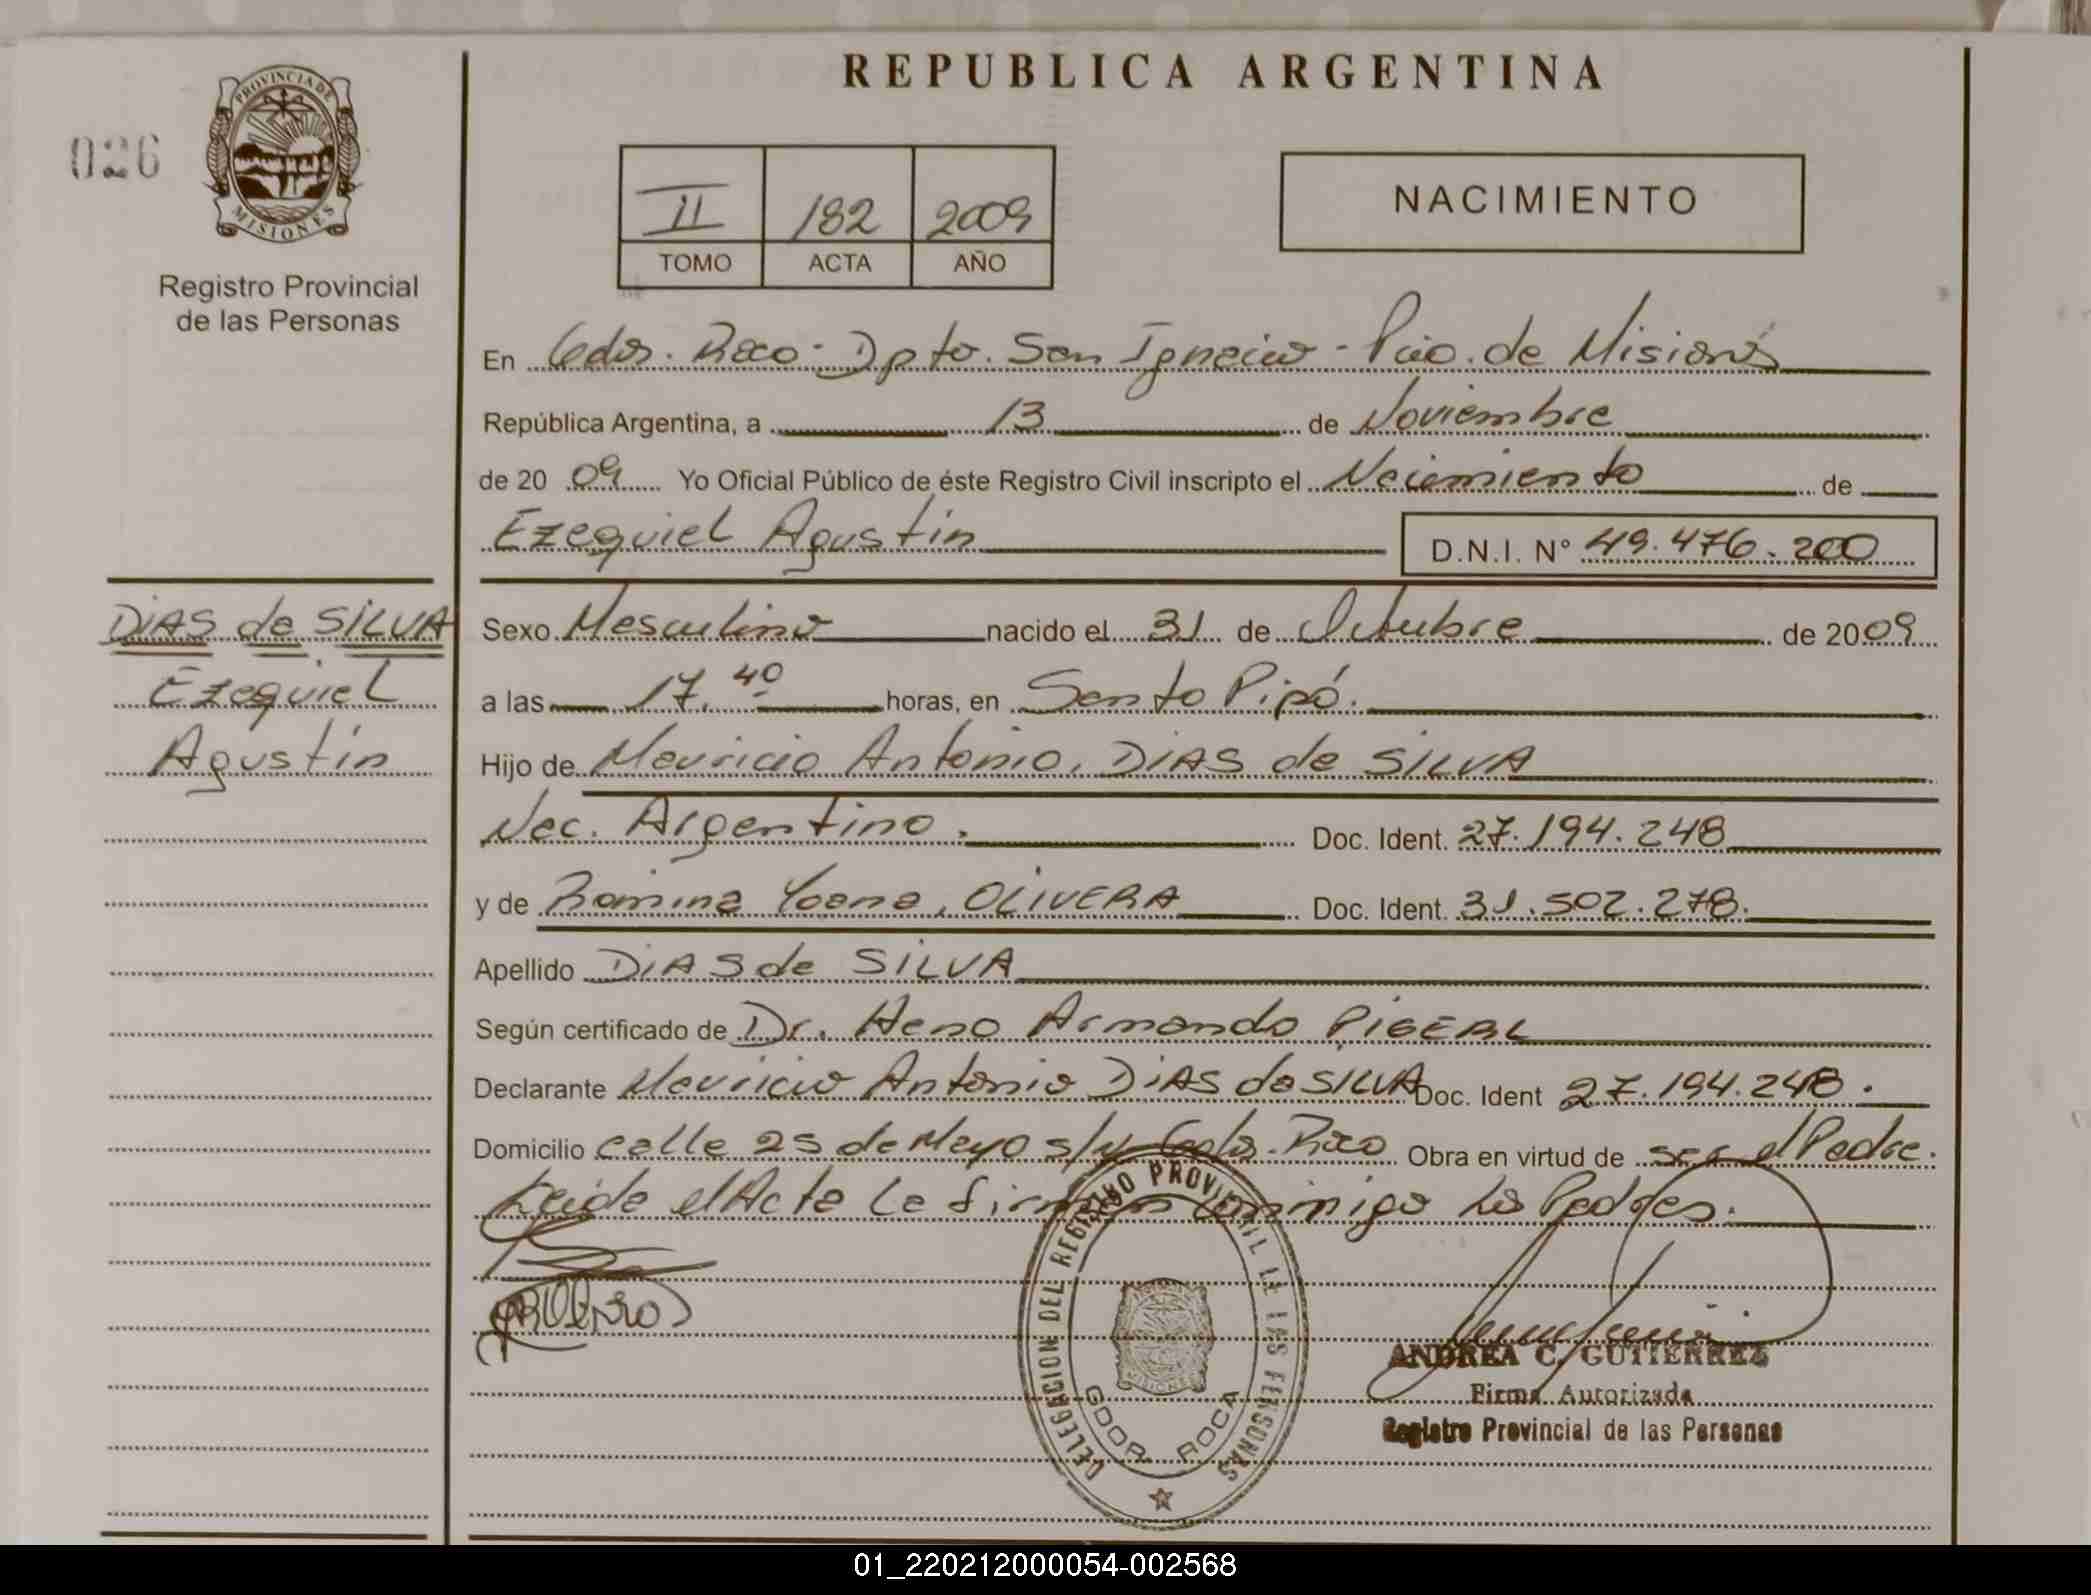 REPUBLICA ARGENTINA
026
PROVINCIA DE
MISIONES
Registro Provincial
de las Personas
II 182 2009
TOMO ACTA AÑO
NACIMIENTO
En Gdor. Roca - Dpto. San Ignacio - Pcio. de Misiones
República Argentina, a 13 de Noviembre
de 20 09 Yo Oficial Público de éste Registro Civil inscripto el Nacimiento de
Ezequiel Agustín
D.N.I. N° 49.476.200
DiAS de SiLVA
Ezequiel
Agustín
Sexo Masculino nacido el 31 de Octubre de 2009
a las 17.40 horas, en Santo Pipó.
Hijo de Mauricio Antonio, DiAS de SiLVA
Nac. Argentino. Doc. Ident. 27.194.248
y de Romina Yoana, OLiVERA Doc. Ident. 31.502.278.
Apellido DiAS de SiLVA
Según certificado de Dr. Armando
Declarante Mauricio Antonio DiAS de SiLVA Doc. Ident 27.194.248.
Domicilio calle 25 de Mayo s/n Gdor. Roca Obra en virtud de ser el Padre.
Leída el Acta la firman conmigo los Padres.
DELEGACION DEL REGISTRO PROVINCIAL DE LAS PERSONAS
MISIONES
GDOR. ROCA
ANDREA C. GUTIERREZ
Firma Autorizada
Registro Provincial de las Personas
01_220212000054-002568